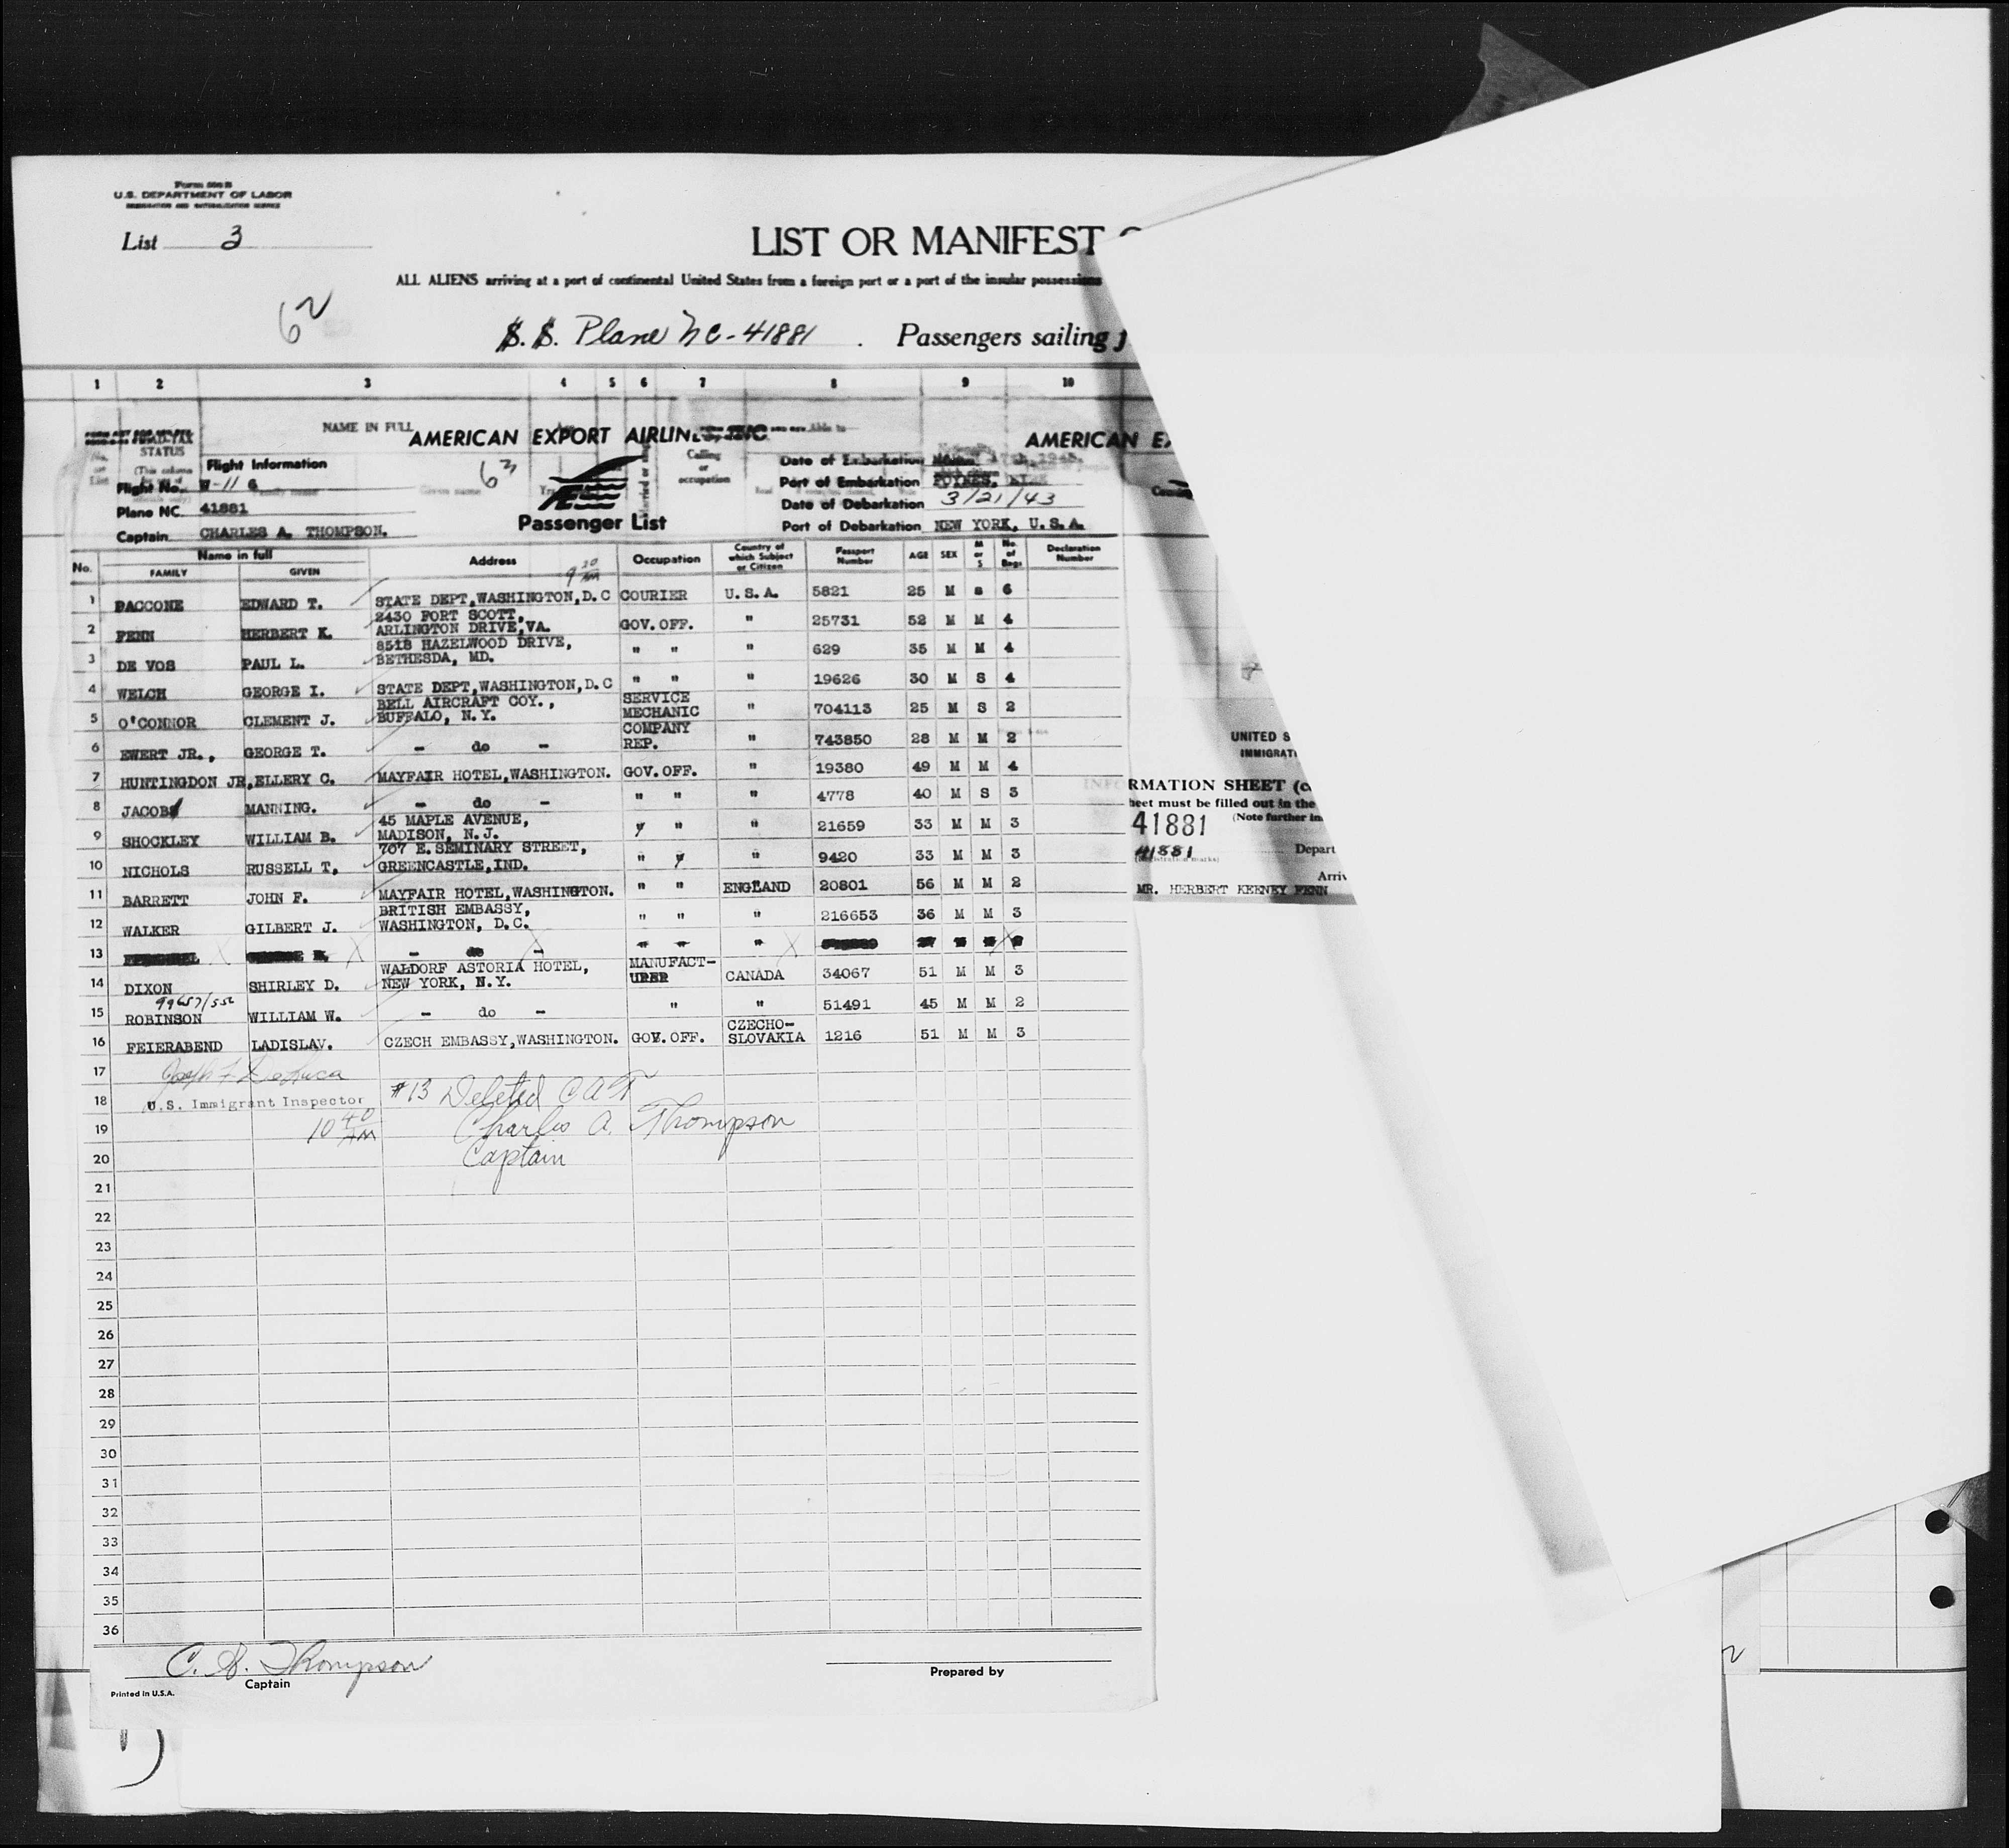 Form 556 B
U.S. DEPARTMENT OF LABOR
IMMIGRATION AND NATURALIZATION SERVICE
List 3
LIST OR MANIFEST
ALL ALIENS arriving at a port of continental United States from a foreign port or a port of the insular possessions
62
S. S. Plane NC-41881 . Passengers sailing
1 2 3 4 5 6 7 8 9 10
NAME IN FULL
AMERICAN EXPORT AIRLINES, INC
AMERICAN EX
STATUS
Flight Information
63
Calling
or
occupation
Flight No. W-11 G
Plane NC. 41881
Captain CHARLES A. THOMPSON.
Passenger List
Date of Embarkation
Port of Embarkation FOYNES,
Date of Debarkation 3/21/43
Port of Debarkation NEW YORK, U.S.A.
No. Name in full Address Occupation Country of which Subject or Citizen Passport Number AGE SEX M or S No. of Bags Declaration Number
FAMILY GIVEN
9 20 AM
1 PACCONE EDWARD T. STATE DEPT,WASHINGTON,D.C COURIER U.S.A. 5821 25 M S 6
2 FENN HERBERT K. 2430 FORT SCOTT, ARLINGTON DRIVE,VA. GOV.OFF. " 25731 52 M M 4
3 DE VOS PAUL L. 8518 HAZELWOOD DRIVE, BETHESDA, MD. " " " 629 35 M M 4
4 WELCH GEORGE I. STATE DEPT,WASHINGTON,D.C " " " 19626 30 M S 4
5 O'CONNOR CLEMENT J. BELL AIRCRAFT COY., BUFFALO, N.Y. SERVICE MECHANIC " 704113 25 M S 2
6 EWERT JR., GEORGE T. - do - COMPANY REP. " 743850 28 M M 2
7 HUNTINGDON JR,ELLERY C. MAYFAIR HOTEL,WASHINGTON. GOV.OFF. " 19380 49 M M 4
8 JACOBS MANNING. - do - " " " 4778 40 M S 3
9 SHOCKLEY WILLIAM B. 45 MAPLE AVENUE, MADISON, N.J. " " " 21659 33 M M 3
10 NICHOLS RUSSELL T, 707 E.SEMINARY STREET, GREENCASTLE,IND. " " " 9420 33 M M 3
11 BARRETT JOHN F. MAYFAIR HOTEL,WASHINGTON. " " ENGLAND 20801 56 M M 2
12 WALKER GILBERT J. BRITISH EMBASSY, WASHINGTON, D.C. " " " 216653 36 M M 3
13 - do - " " "
14 DIXON SHIRLEY D. WALDORF ASTORIA HOTEL, NEW YORK, N.Y. MANUFACT-URER CANADA 34067 51 M M 3
99657/552
15 ROBINSON WILLIAM W. - do - " " 51491 45 M M 2
16 FEIERABEND LADISLAV. CZECH EMBASSY,WASHINGTON. GOV.OFF. CZECHO-SLOVAKIA 1216 51 M M 3
17
18 U.S. Immigrant Inspector #13 Deleted CAT
19 10 40 AM Charles A. Thompson
20 Captain
21
22
23
24
25
26
27
28
29
30
31
32
33
34
35
36
C. A. Thompson
Captain
Prepared by
Printed in U.S.A.
UNITED S
IMMIGRATI
INFORMATION SHEET (c
heet must be filled out in the
41881 (Note further in
41881 Depart
Arriv
MR. HERBERT KEENEY FENN